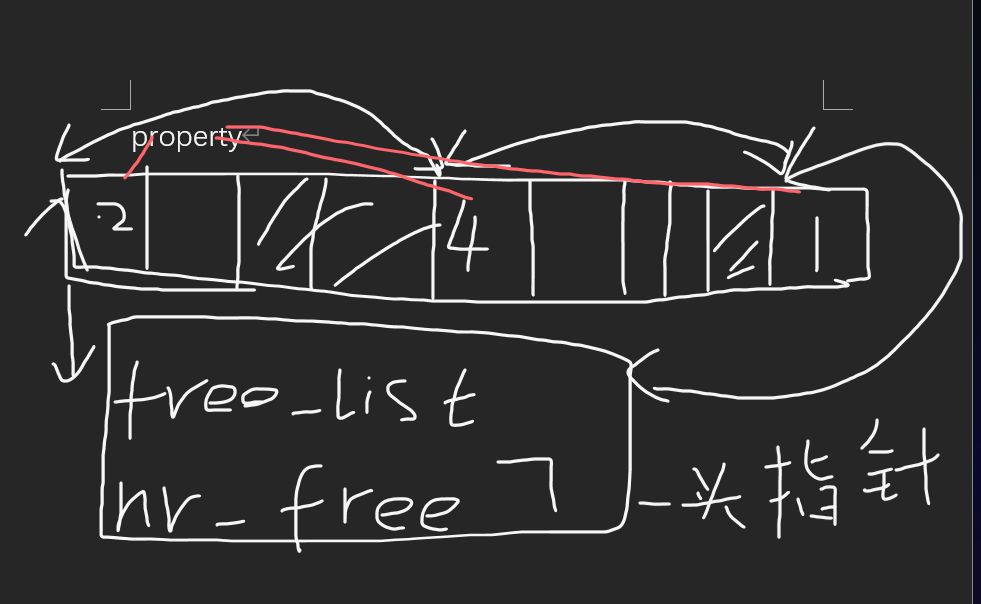 property
2 4 1
free_list
nr_free 7
头指针